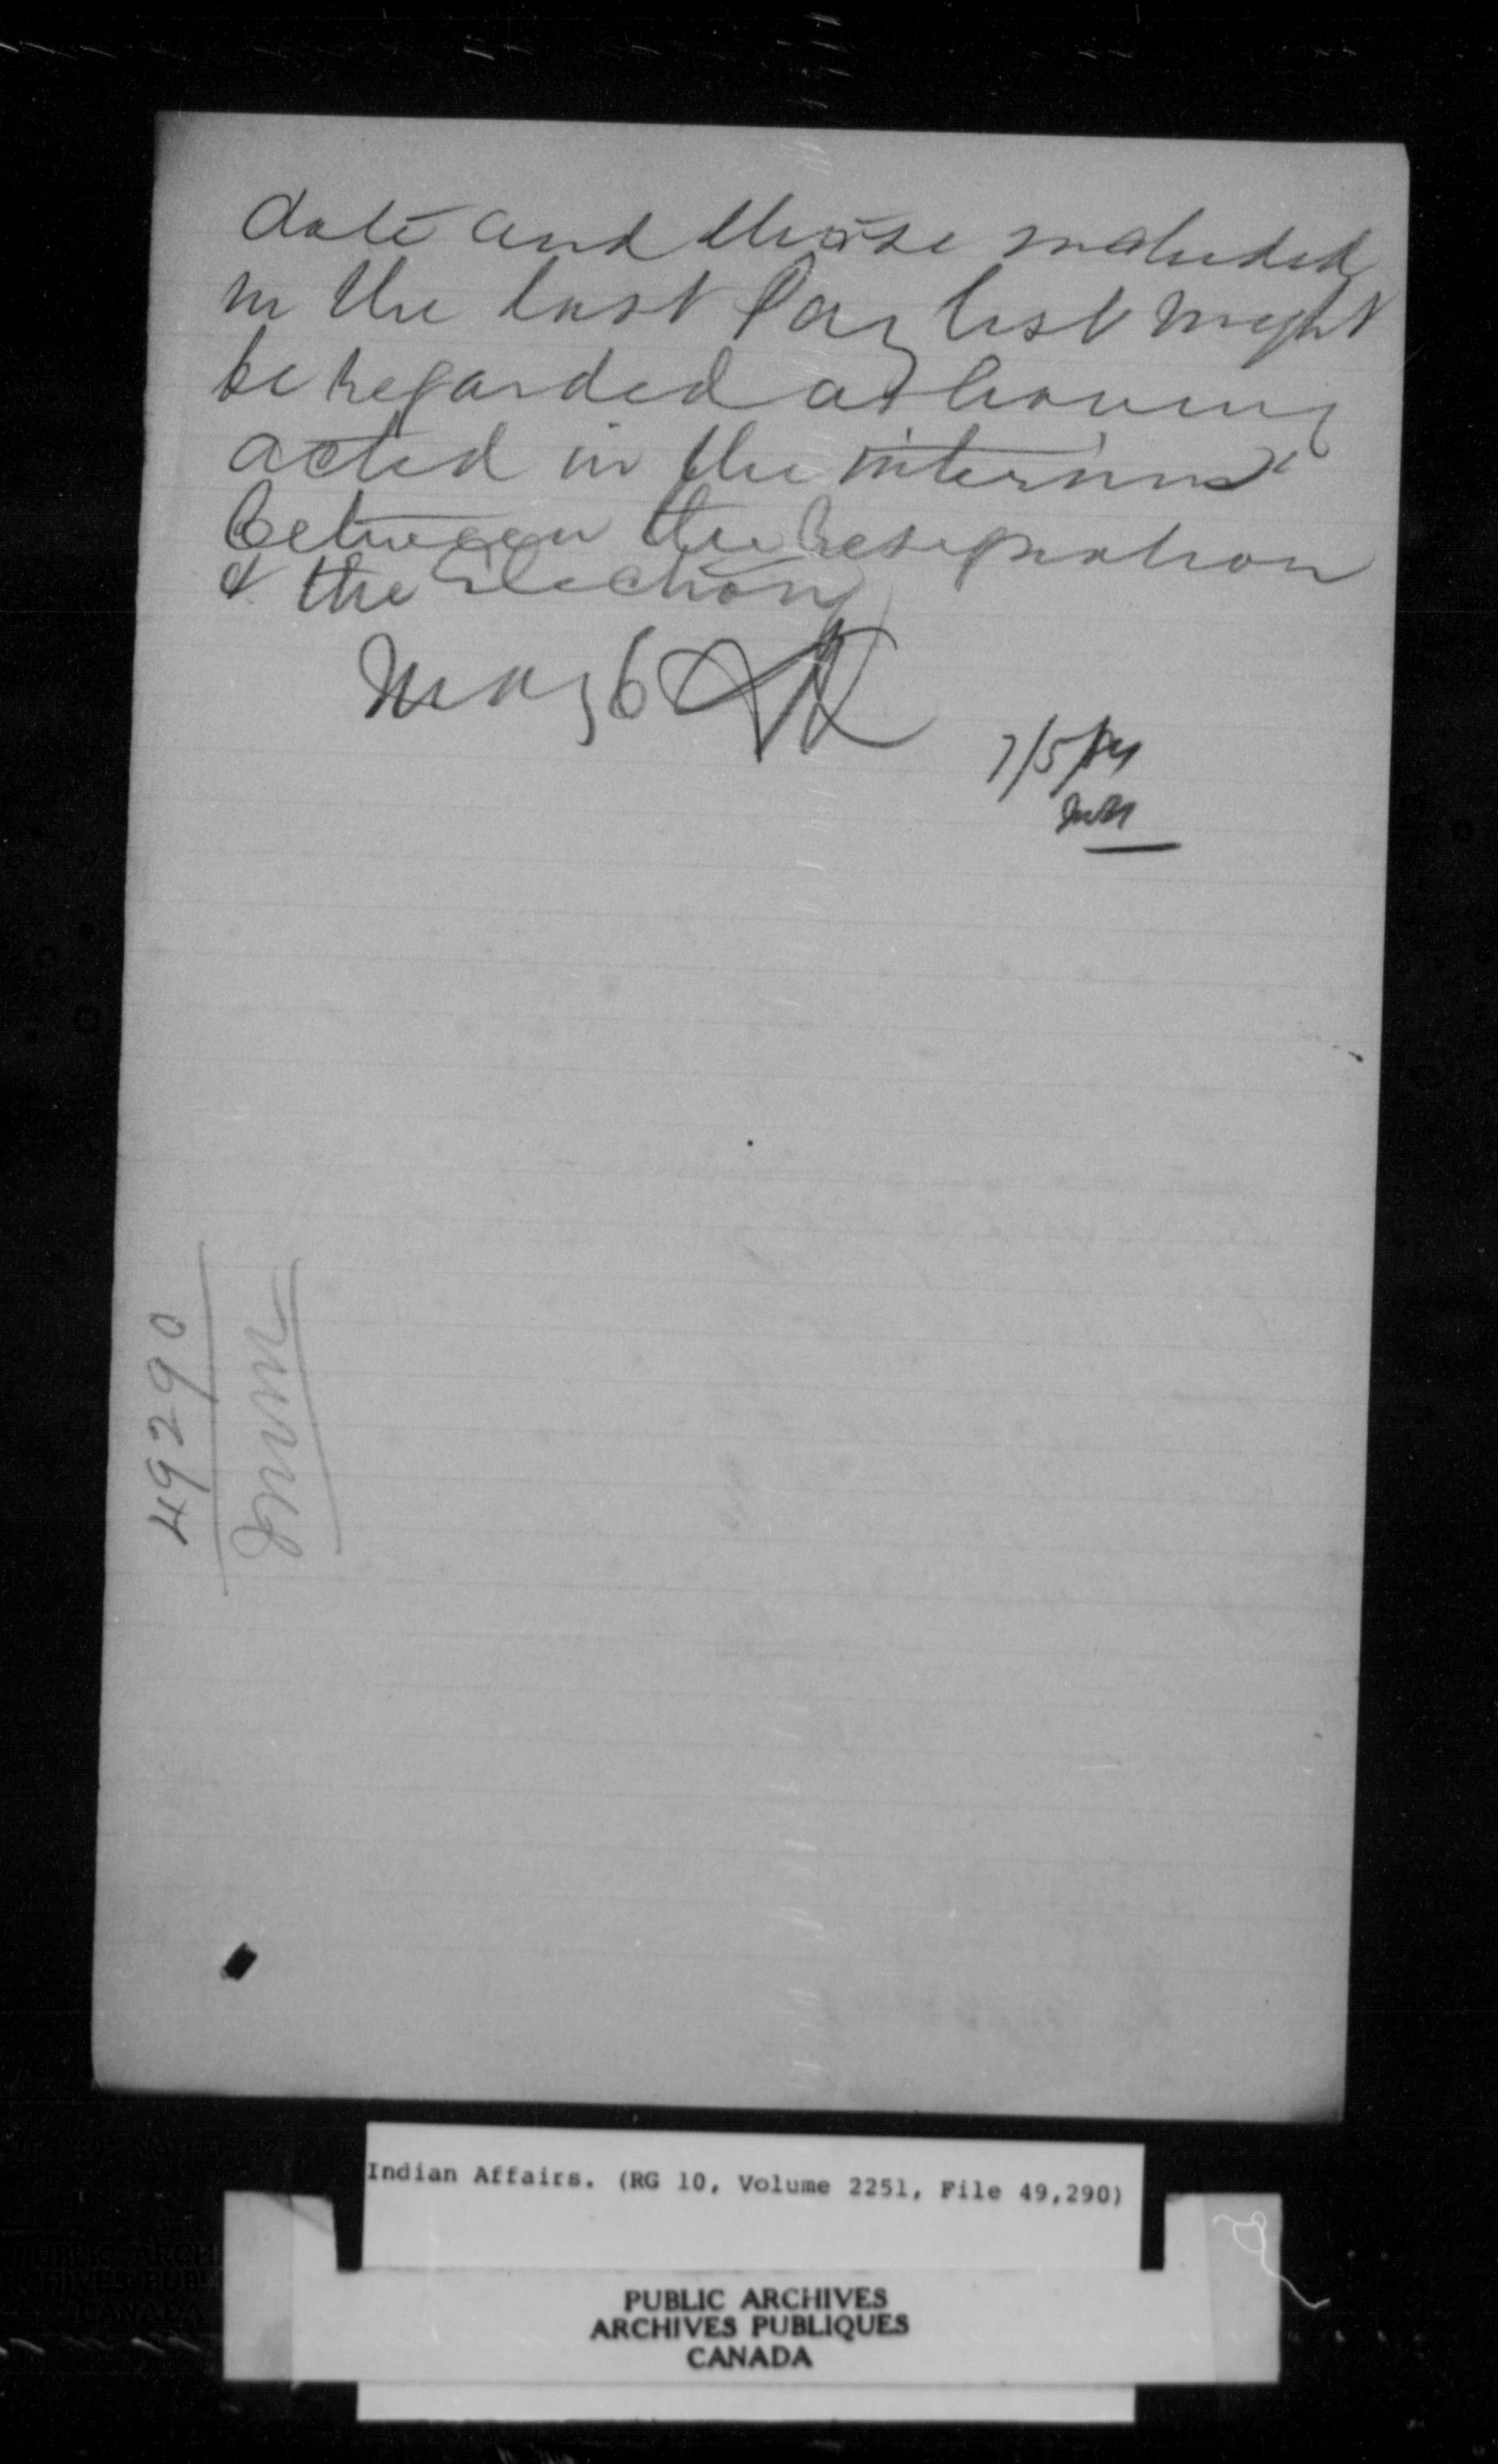 date and those included
in the last Pay list might
be regarded as having
acted in the interim
between the resignation
& the Election
May 6
7/5/84
49290
Indian Affairs. (RG 10, Volume 2251, File 49,290)
PUBLIC ARCHIVES
ARCHIVES PUBLIQUES
CANADA